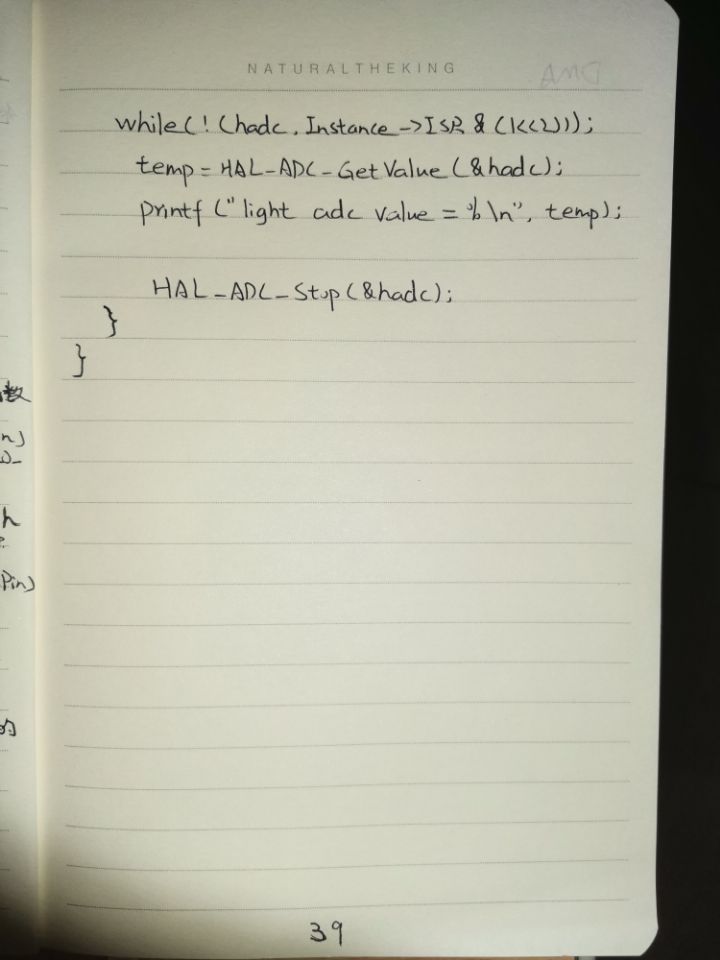 NATURALTHEKING
while(!(hadc.Instance->ISR & (1<<2)));
temp = HAL_ADC_GetValue(&hadc);
printf("light adc value = %\n", temp);
HAL_ADC_Stop(&hadc);
}
}
数
n)
h
Pin)
的
39